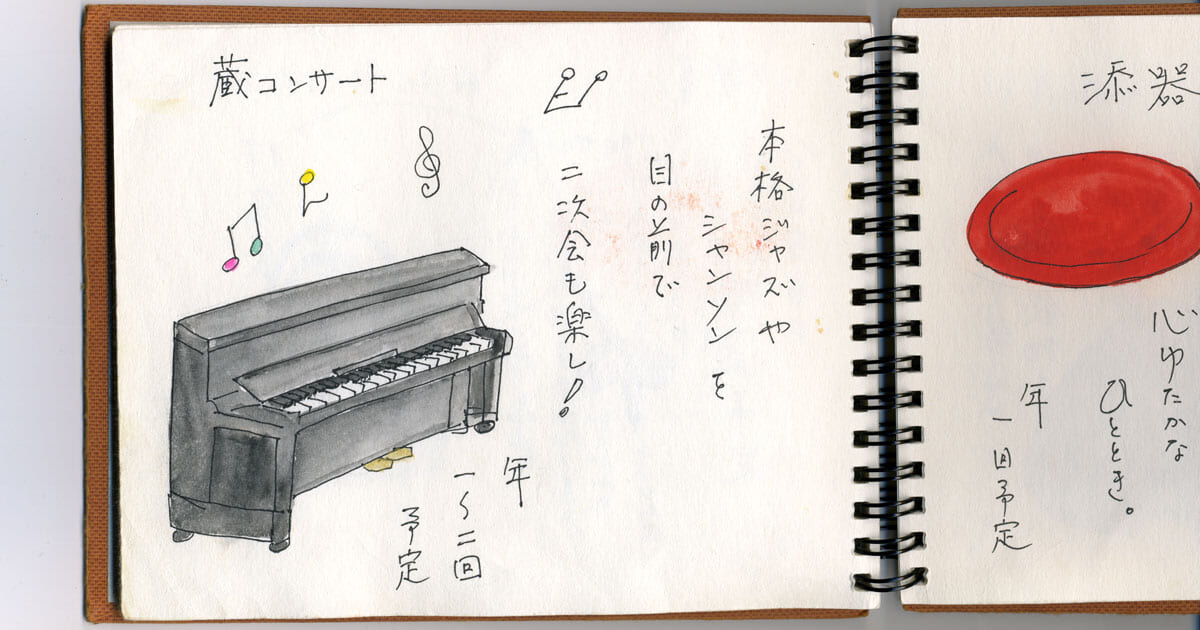 蔵コンサート
本格ジャズや
シャンソンを
目の前で
二次会も楽し！
年
一〜二回
予定
漆器
心ゆたかな
ひととき。
年
一回予定